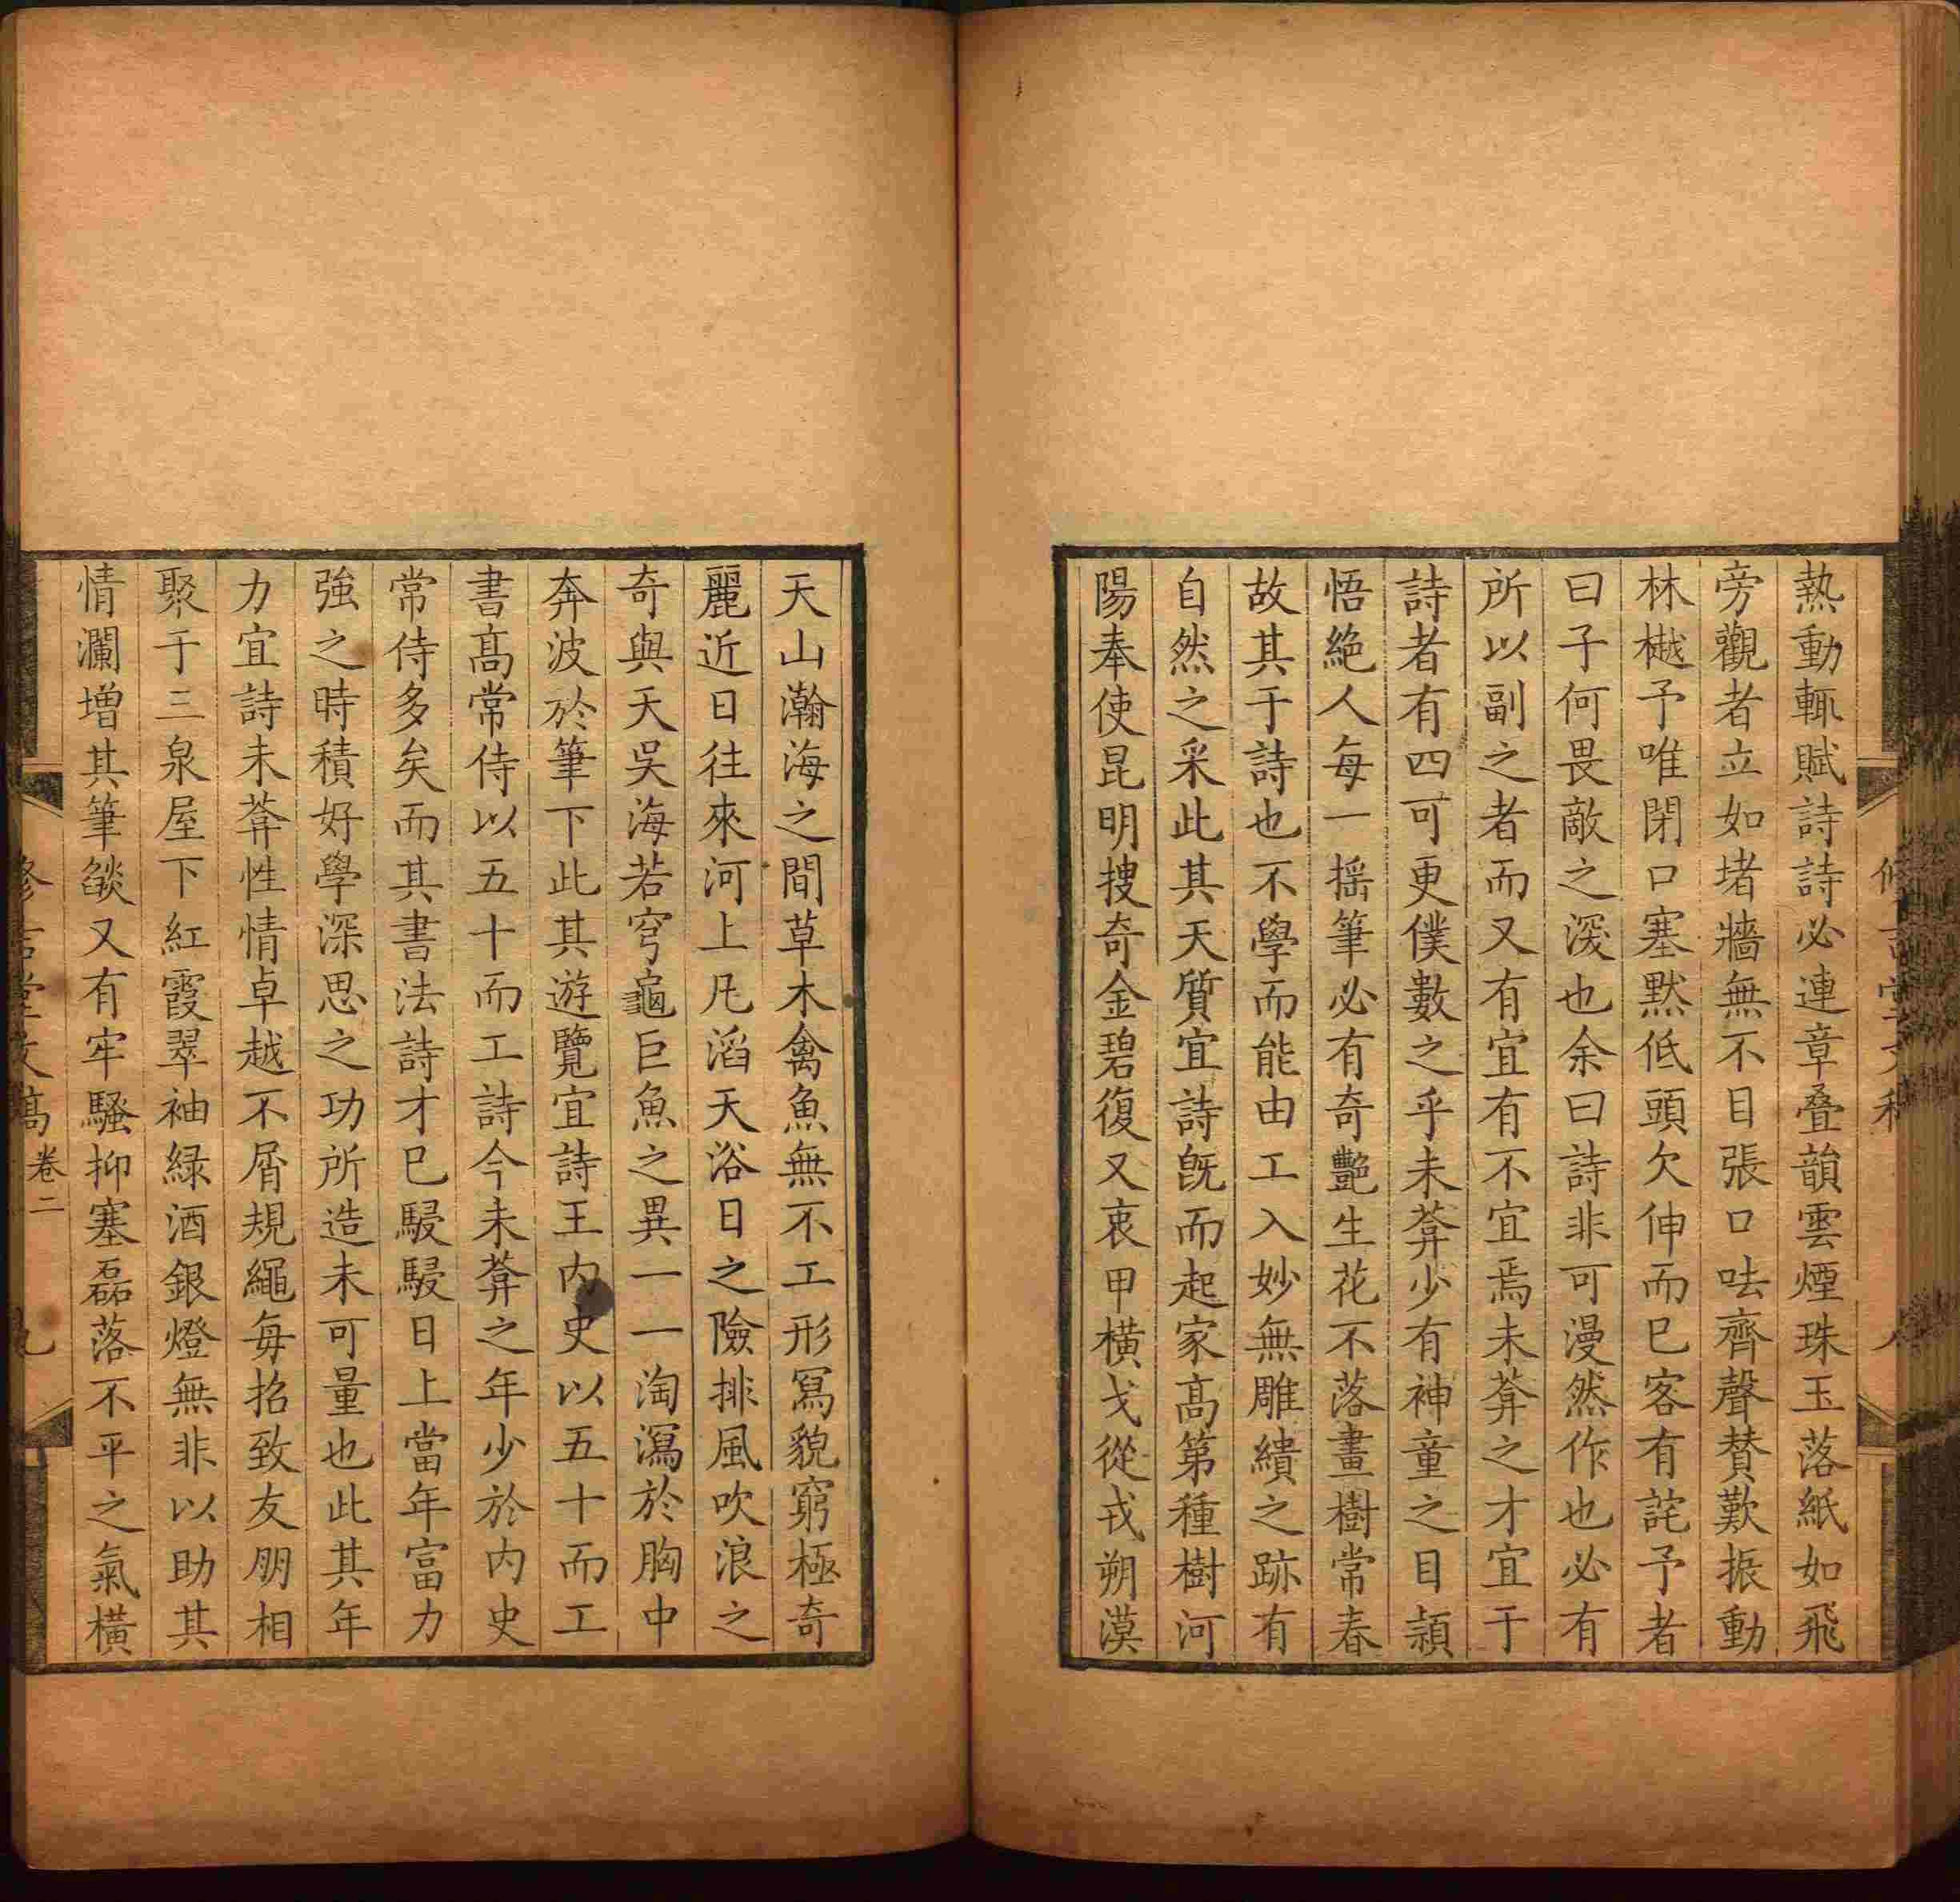 熱動輒賦詩詩必連章叠韻雲煙珠玉落紙如飛
旁觀者立如堵牆無不目張口呿齊聲賛歎振動
林樾予唯閉口塞默低頭欠伸而已客有詫予者
曰子何畏敵之深也余曰詩非可漫然作也必有
所以副之者而又有宜有不宜焉未葊之才宜于
詩者有四可更僕數之乎未葊少有神童之目穎
悟絶人每一搖筆必有奇艷生花不落畫樹常春
故其于詩也不學而能由工入妙無雕繢之跡有
自然之采此其天質宜詩旣而起家高第種樹河
陽奉使昆明搜奇金碧復又衷甲橫戈從戎朔漠
天山瀚海之間草木禽魚無不工形冩貌窮極奇
麗近日往來河上凡滔天浴日之險排風吹浪之
奇與天吳海若穹龜巨魚之異一一淘瀉於胸中
奔波於筆下此其遊覽宜詩王內史以五十而工
書高常侍以五十而工詩今未葊之年少於內史
常侍多矣而其書法詩才已駸駸日上當年富力
強之時積好學深思之功所造未可量也此其年
力宜詩未葊性情卓越不屑規繩每招致友朋相
聚于三泉屋下紅霞翠袖緑酒銀燈無非以助其
情瀾增其筆燄又有牢騷抑塞磊落不平之氣橫
卷二